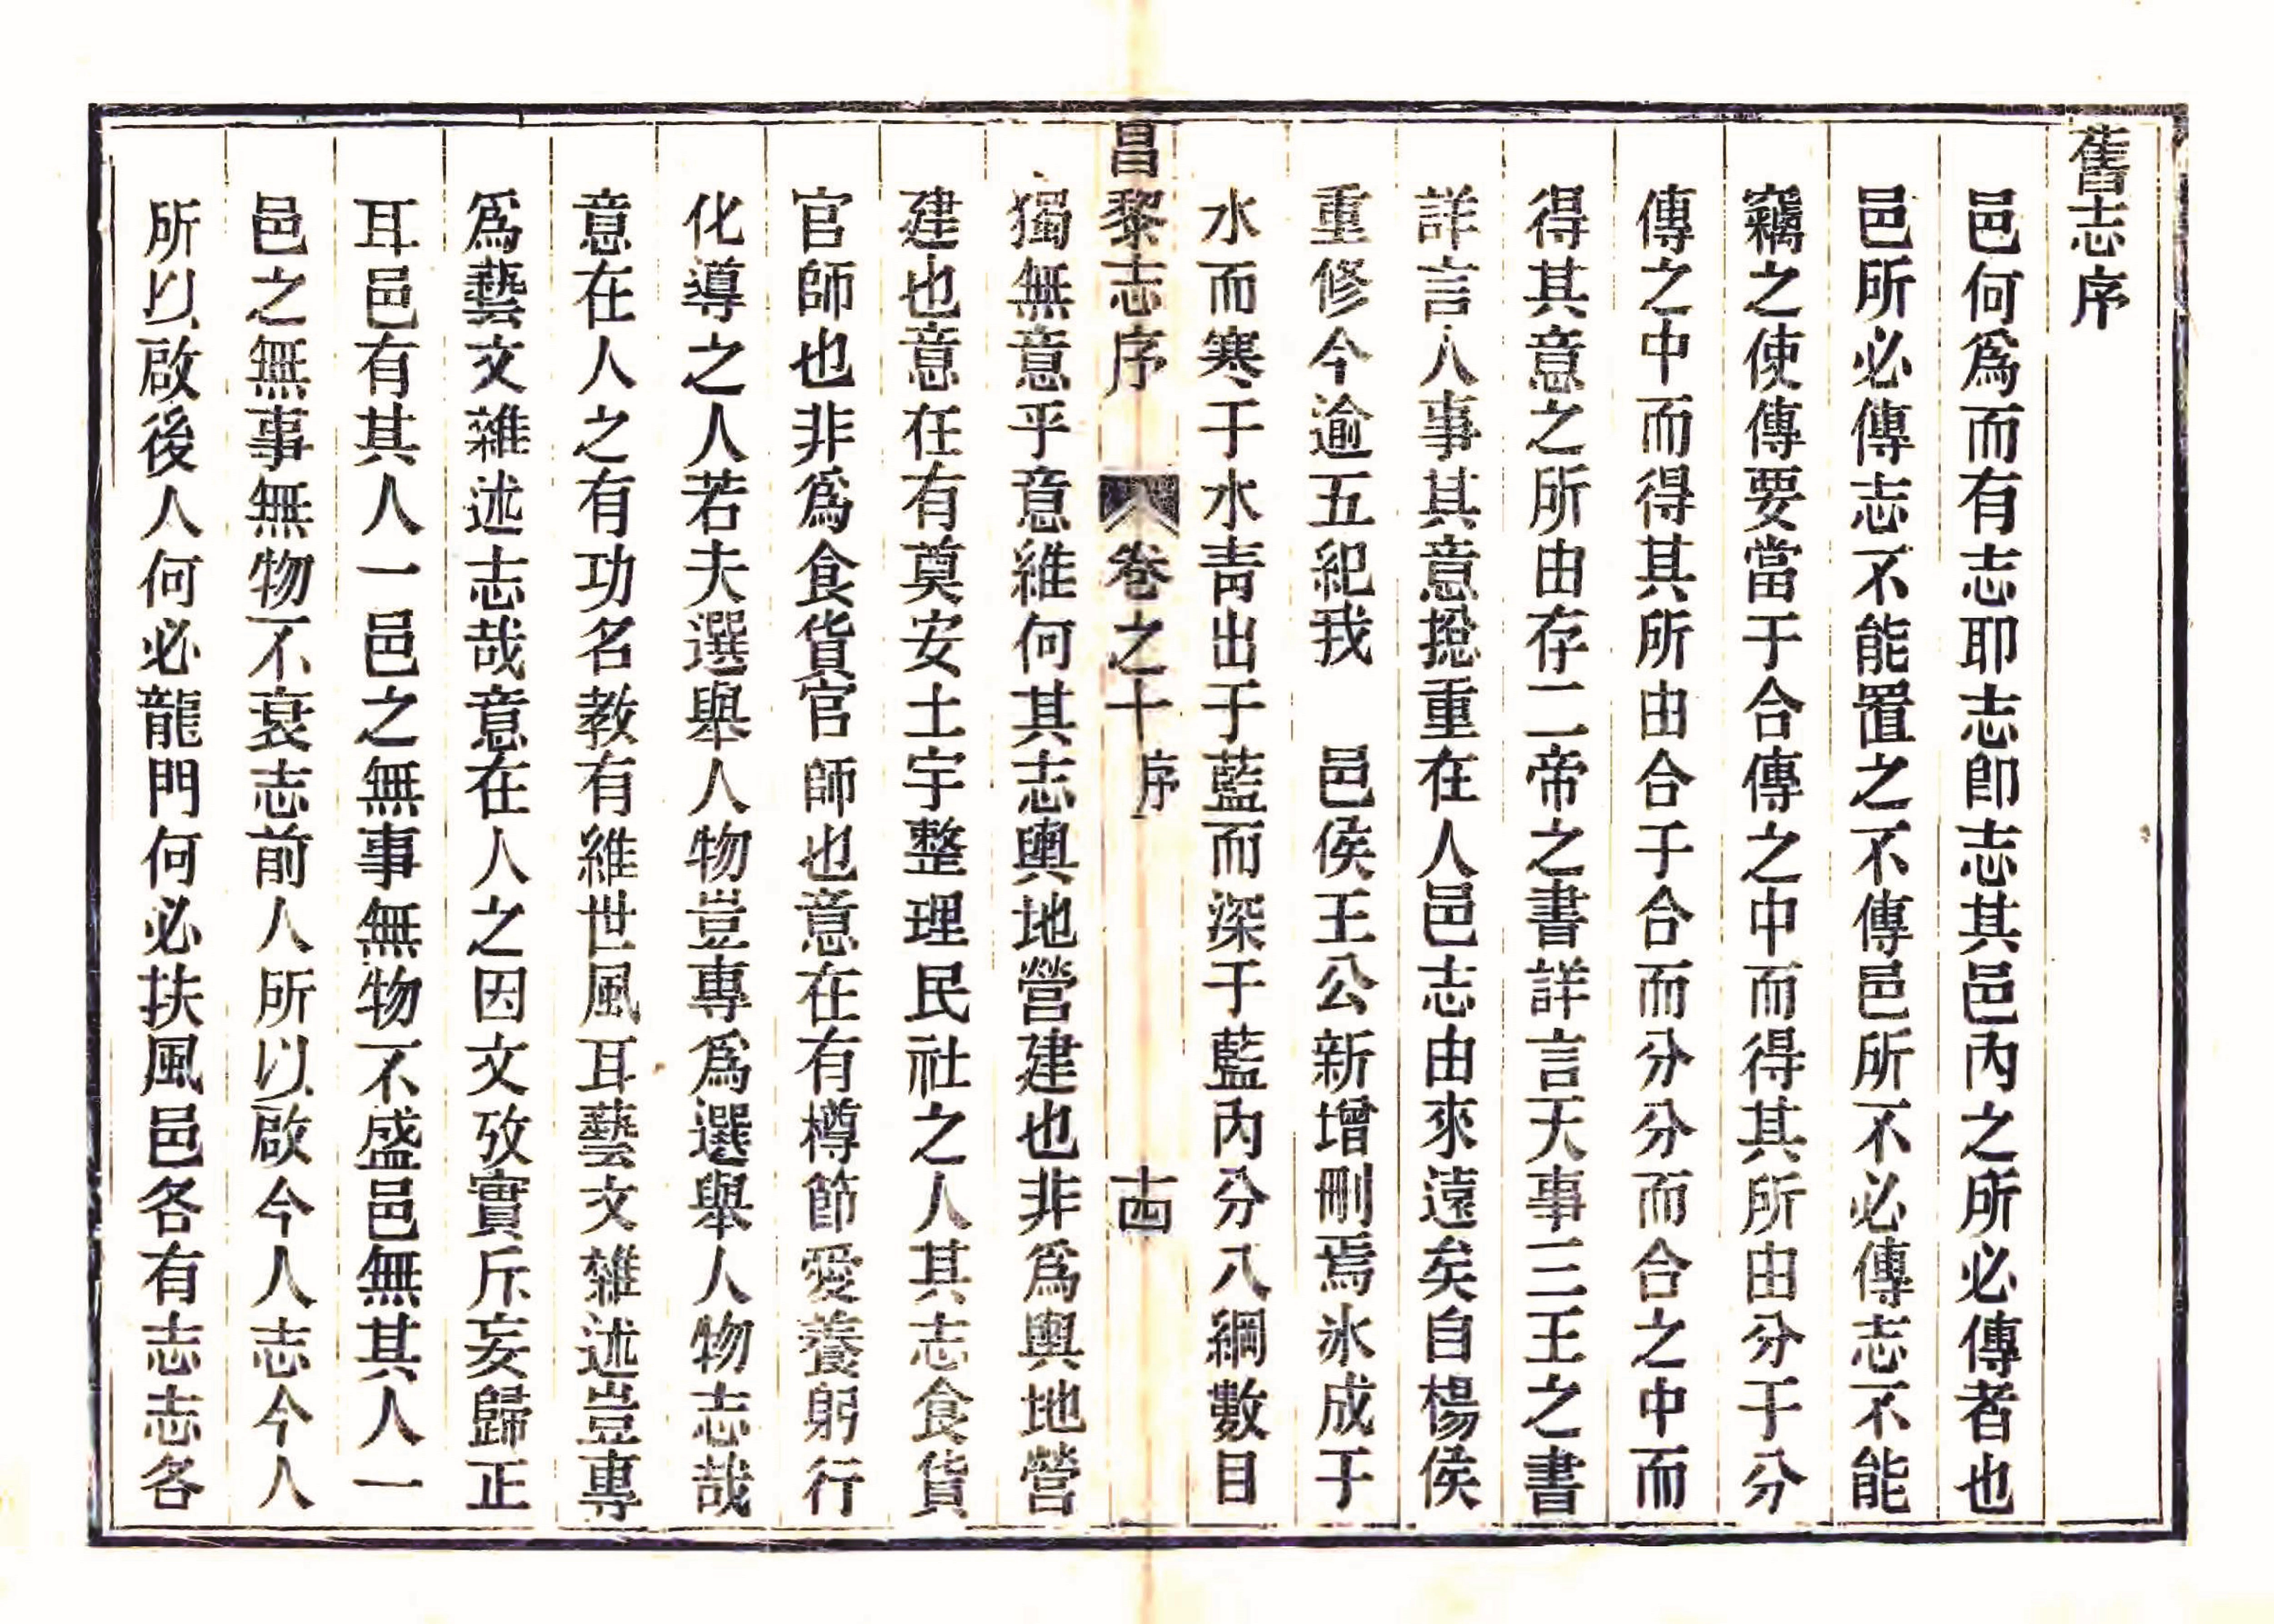 舊志序
邑何爲而有志耶志卽志其邑內之所必傳者也
邑所必傳志不能置之不傳邑所不必傳志不能
竊之使傳要當于合傳之中而得其所由分于分
傳之中而得其所由合于合而分分而合之中而
得其意之所由存二帝之書詳言天事三王之書
詳言人事其意捴重在人邑志由來遠矣自楊侯
重修今逾五紀我　邑侯王公新增刪焉氷成于
水而寒于水靑出于藍而深于藍內分八綱數目
昌黎志序　卷之十序　十四
獨無意乎意維何其志輿地營建也非爲輿地營
建也意在有奠安土宇整理民社之人其志食貨
官師也非爲食貨官師也意在有樽節愛養躬行
化導之人若夫選舉人物豈專爲選舉人物志哉
意在人之有功名教有維世風耳藝文雜述豈專
爲藝文雜述志哉意在人之因文攷實斥妄歸正
耳邑有其人一邑之無事無物不盛邑無其人一
邑之無事無物不衰志前人所以啟今人志今人
所以啟後人何必龍門何必扶風邑各有志志各